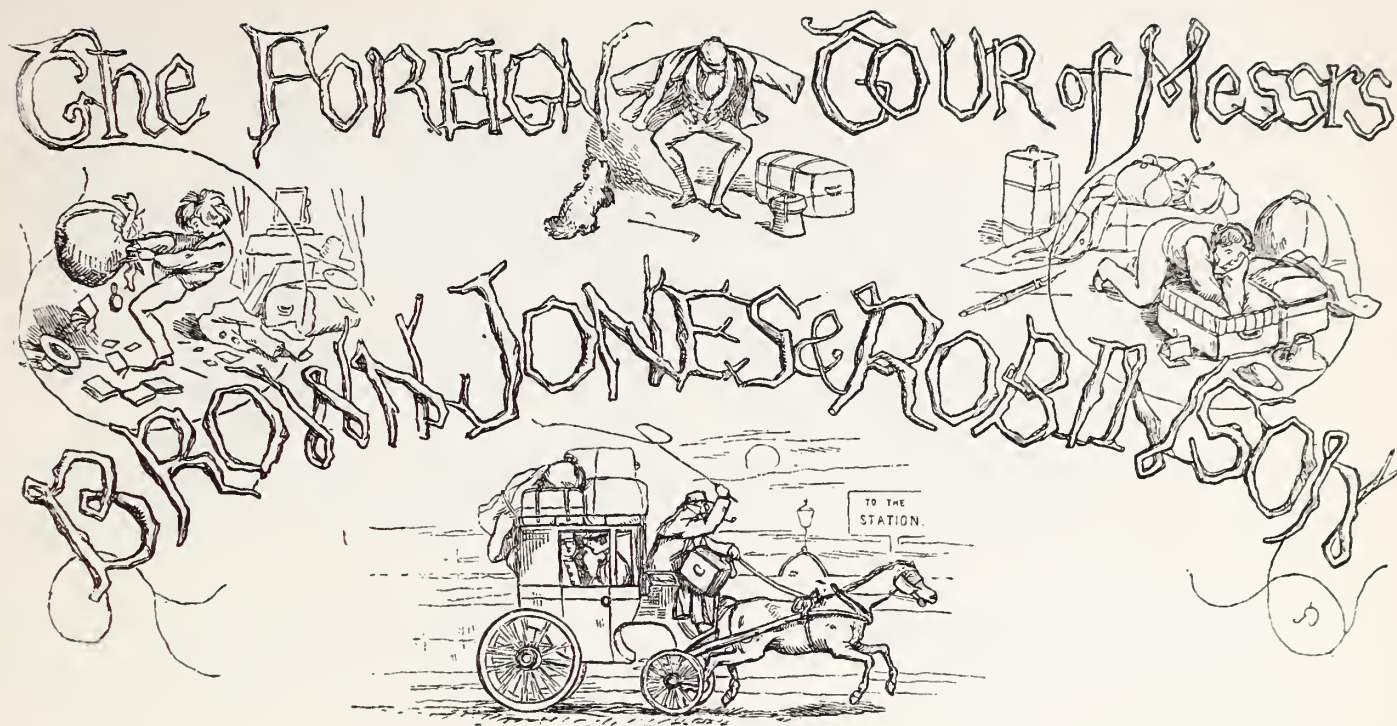 The FOREIGN TOUR of Messrs
BROWN JONES & ROBINSON
TO THE
STATION.